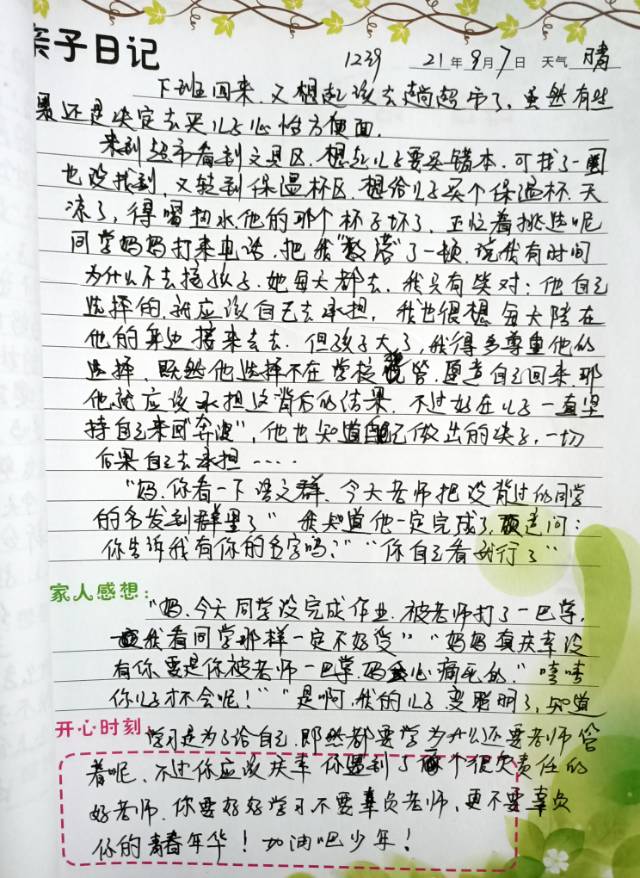 亲子日记 1239 21年9月7日 天气 晴
下班回来,又想起该去趟超市了,虽然有些
累还是决定去买儿子心怡方便面.
来到超市看到文具区,想起儿子要买错本,可找了一圈
也没找到,又转到保温杯区,想给儿子买个保温杯.天
凉了,得喝热水,他的那个杯子坏了,正忙着挑选呢
同学妈妈打来电话,把我"数落"了一顿,说我有时间
为什么不去接孩子,她每天都去,我只有笑对:他自己
选择的,就应该自己去承担,我也很想每天陪在
他的身边接来去去.但孩子大了,我得多尊重他的
选择,既然他选择不在学校托管,愿意自己回来,那
他就应该承担这背后的结果.不过好在儿子一直坚
持自己来回"奔波",他也知道自己做出的决定,一切
后果自己去承担……
"妈,你看一下语文群,今天老师把没背过的同学
的名发到群里了"我知道他一定完成了,故意问:
你告诉我有你的名字吗?""你自己看就行了"
家人感想:
"妈,今天同学没完成作业,被老师打了一巴掌,
我看同学那样一定不好受""妈妈真庆幸没
有你,要是你被老师一巴掌,妈会心痛死的.""嘻嘻
你儿子才不会呢!""是啊,我的儿子变聪明了,知道
开心时刻
学习是为了给自己,即然都要学为什么还要老师管
着呢,不过你应该庆幸你遇到了个很负责任的
好老师,你要好好学习不要辜负老师,更不要辜负
你的青春年华!加油吧少年!